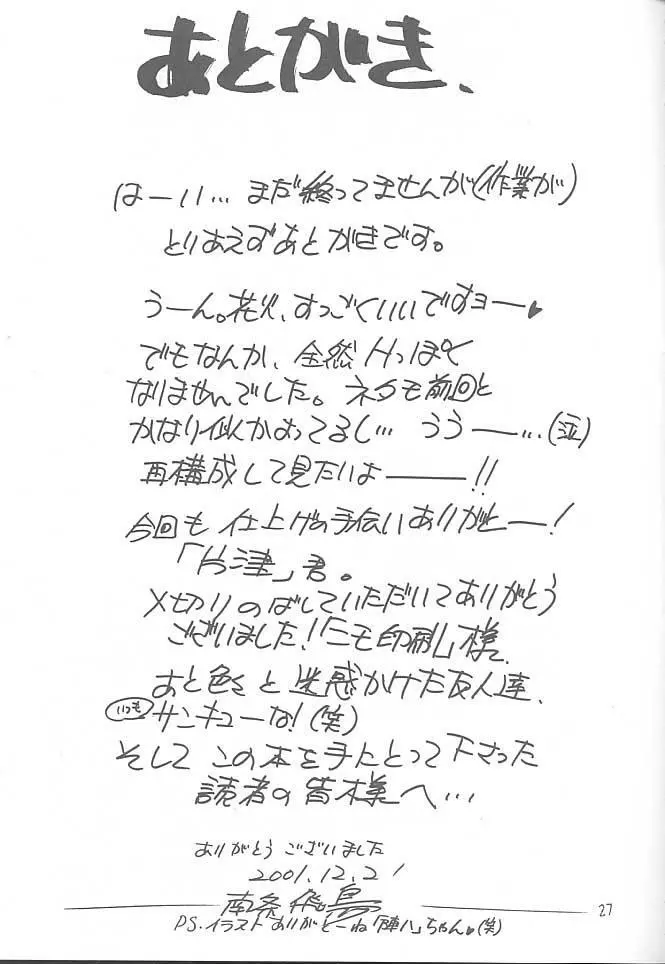 あとがき、
はーい… まだ終ってませんが(作業が)
とりあえずあとがきです。
うーん。花火、すっごくいいですョー♥
でもなんか、全然Hっぽく
なりませんでした。ネタも前回と
かなり似かよってるし… ううー…(泣)
再構成して見たいよ――!!
今回も 仕上げの手伝いありがとー!
「片津」君。
〆切りのばしていただいてありがとう
ございました!「ニモ印刷」様。
あと色々と迷惑かけた友人達、
いつもサンキューな!(笑)
そして この本を手にとって下さった
読者の皆様へ…
ありがとう ございました
2001.12.21
南条飛鳥
27
PS.イラスト ありがとーね「陣八」ちゃん♥(笑)